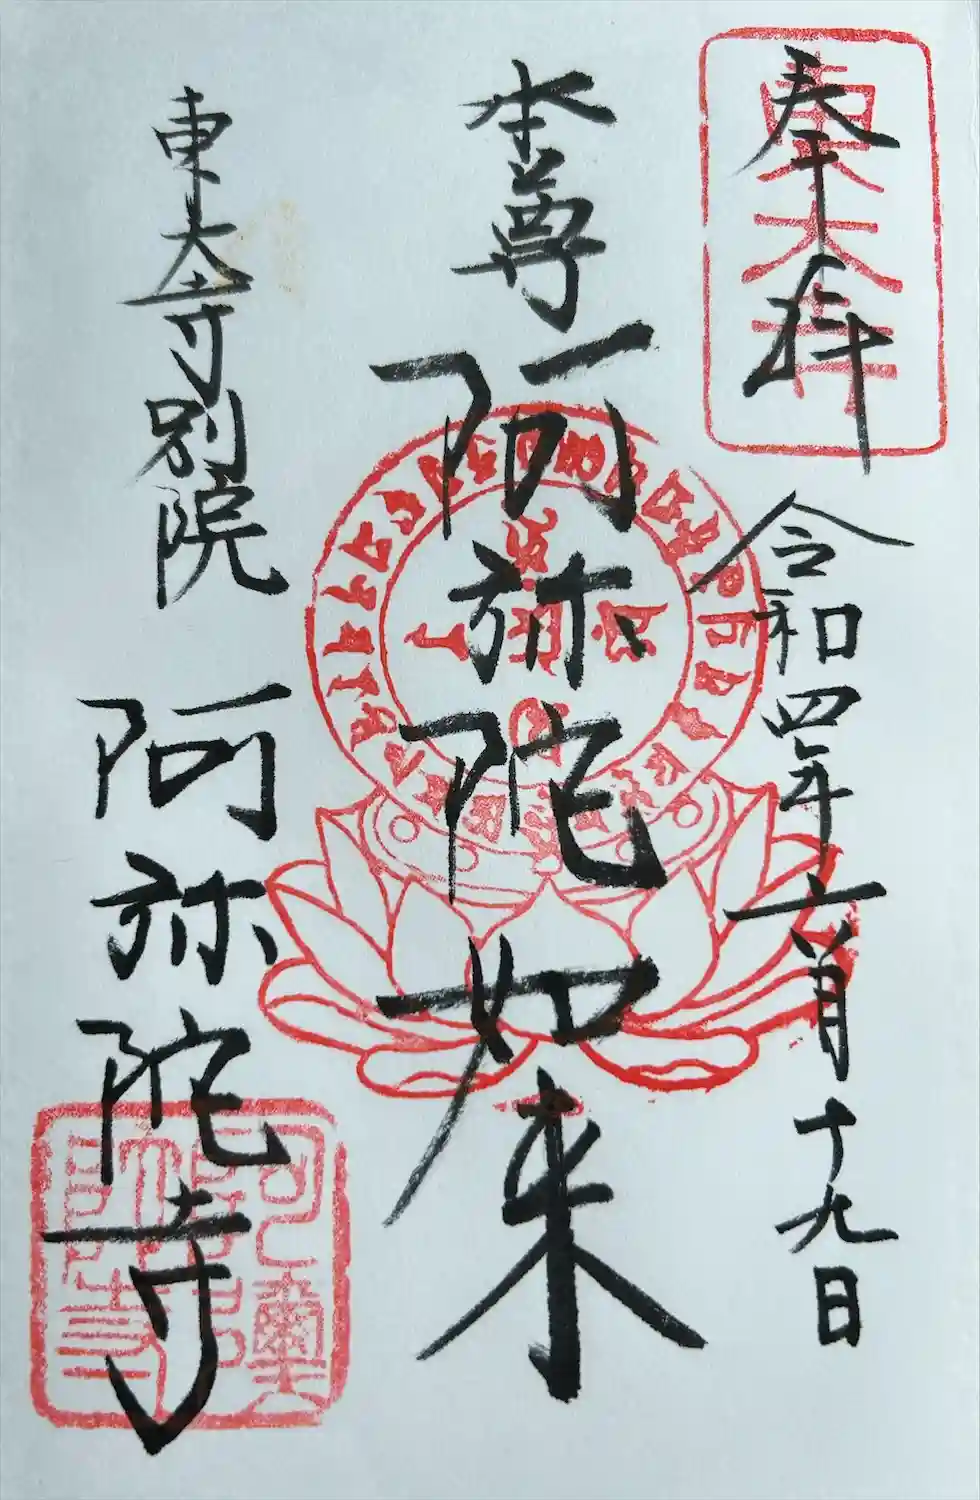 奉拝
東大寺
令和四年六月十九日
本尊
阿弥陀如来
東大寺別院
阿弥陀寺